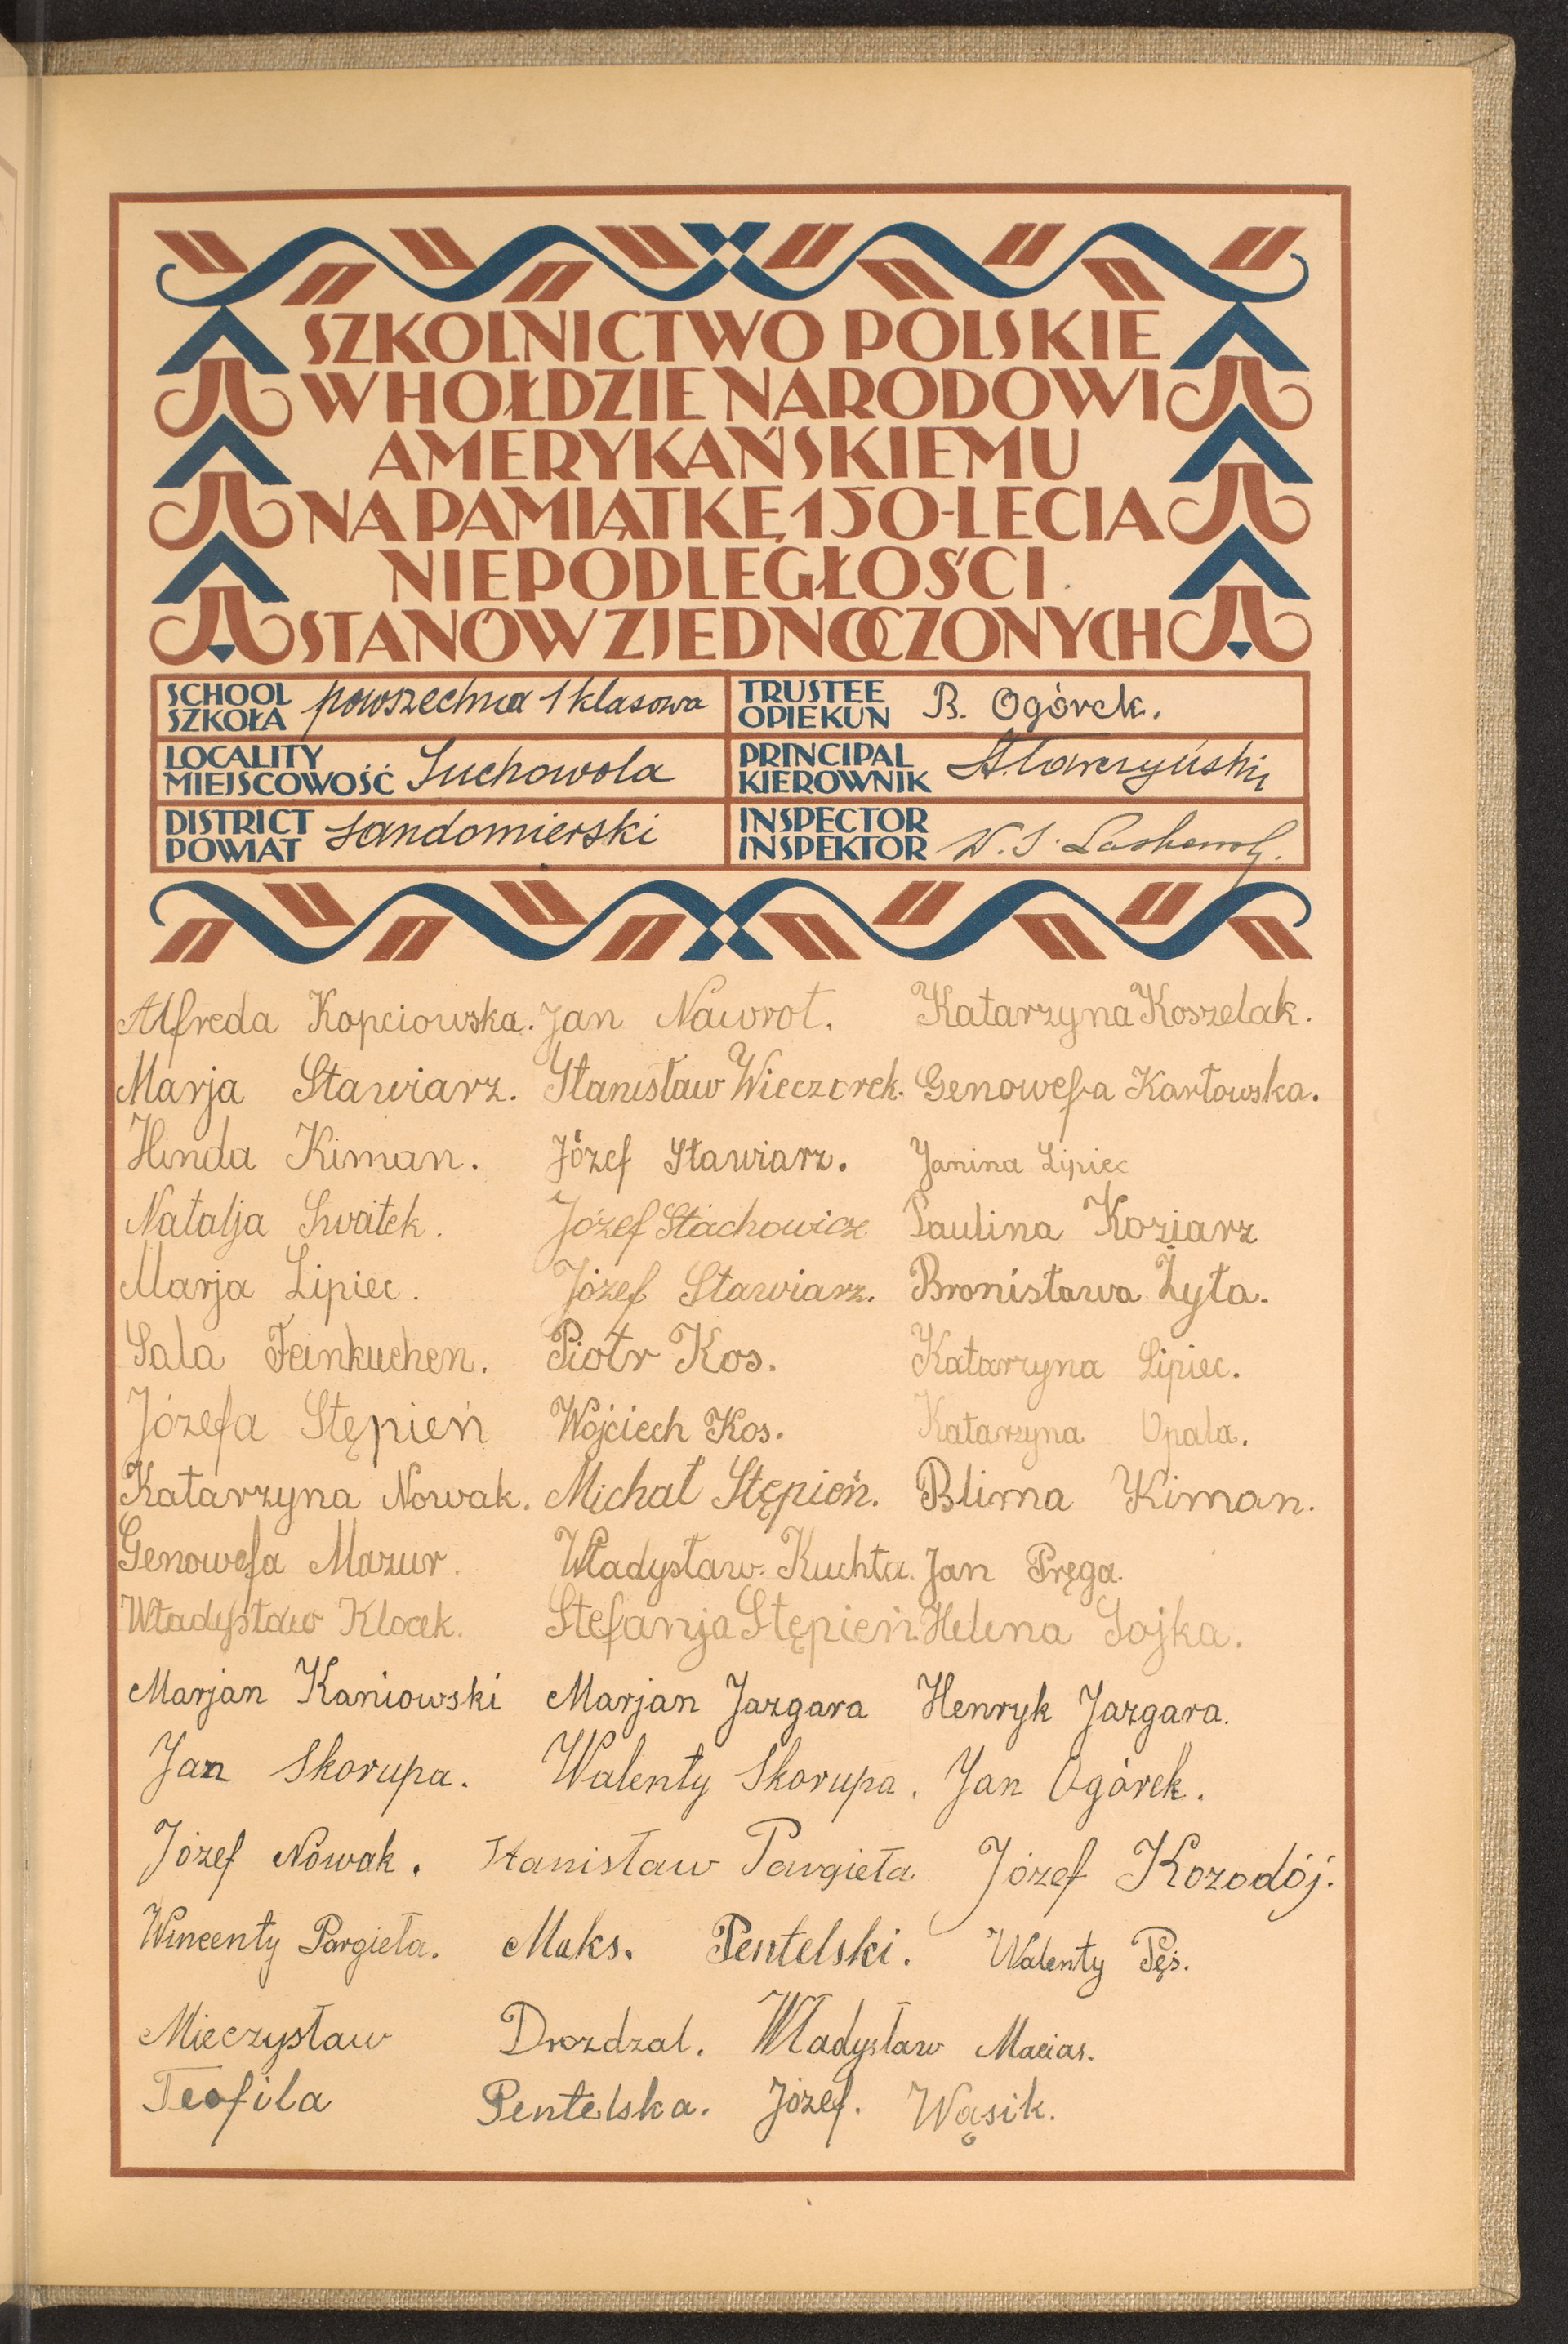 SZKOLNICTWO POLSKIE
W HOŁDZIE NARODOWI
AMERYKAŃSKIEMU
NA PAMIĄTKĘ 150-LECIA
NIEPODLEGŁOŚCI
STANÓW ZJEDNOCZONYCH
SCHOOL SZKOŁA powszechna 1 klasowa
TRUSTEE OPIEKUN B. Ogórek.
LOCALITY MIEJSCOWOŚĆ Suchowola
PRINCIPAL KIEROWNIK
DISTRICT POWIAT sandomierski
INSPECTOR INSPEKTOR W. S.
Alfreda Kopciowska. Jan Nawrot. Katarzyna Koszelak.
Marja Stawiarz. Stanisław Wieczorek. Genowefa Karłowska.
Hinda Kiman. Józef Stawiarz. Janina Lipiec
Natalja Swatek. Józef Stachowicz Paulina Koziarz
Marja Lipiec. Józef Stawiarz. Bronisława Żyła.
Sala Feinkuchen. Piotr Kos. Katarzyna Lipiec.
Józefa Stępień Wojciech Kos. Katarzyna Opala.
Katarzyna Nowak. Michał Stępień. Blima Kiman.
Genowefa Mazur. Władysław Kuchta. Jan Pręga.
Władysław Klocek. Stefanja Stępień. Helena Sojka.
Marjan Kaniowski Marjan Jazgara Henryk Jazgara.
Jan Skorupa. Walenty Skorupa. Jan Ogórek.
Józef Nowak. Stanisław Pargieła. Józef Kozodój.
Wincenty Pargieła. Maks. Pentelski. Walenty Pęś.
Mieczysław Drozdzal. Władysław Macias.
Teofila Pentelska. Józef. Wąsik.